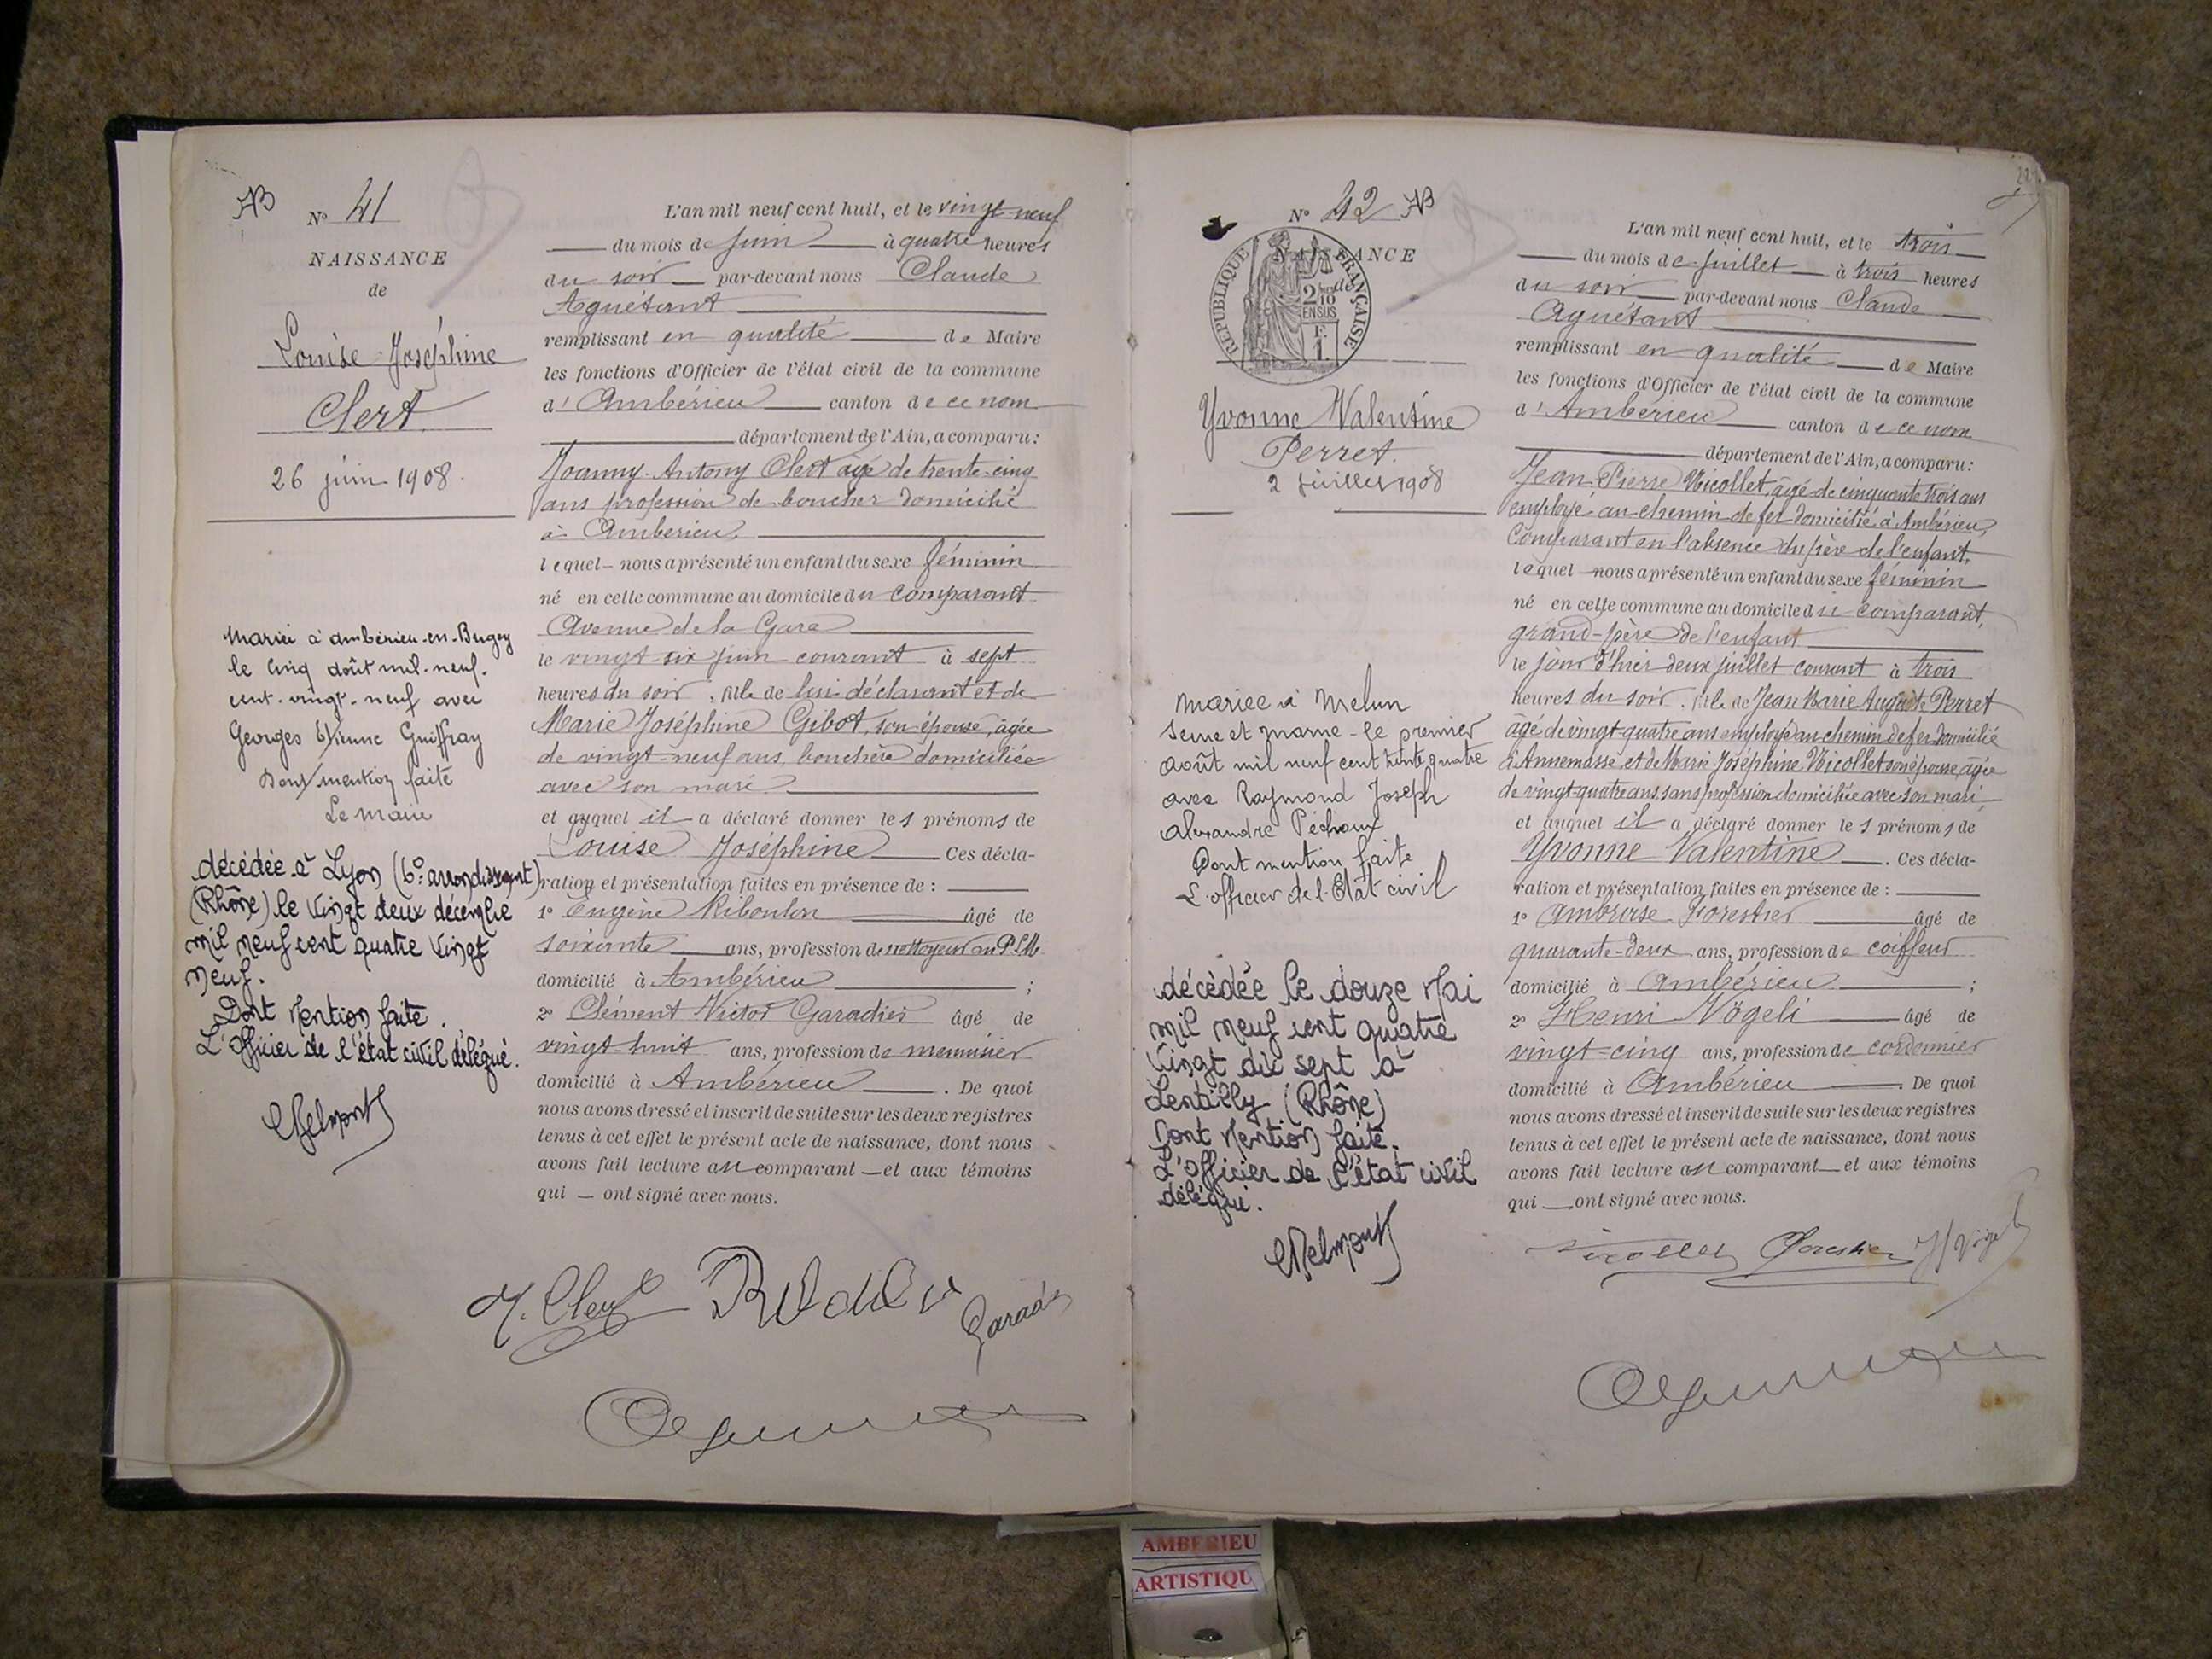 AB
N° 41
NAISSANCE
de
Louise Joséphine
Clert
26 juin 1908.
Mariée à Ambérieu-en-Bugey
le Cinq Août mil-neuf-
cent-vingt-neuf avec
Georges Etienne Guiffray
Dont mention faite
Le Maire
décédée à Lyon (6° arrondissement)
(Rhône) le vingt deux décembre
mil neuf cent quatre vingt
neuf.
Dont mention faite.
L'officier de l'état civil délégué.
L'an mil neuf cent huit, et le vingt-neuf
du mois de juin à quatre heures
du soir par-devant nous Claude
Aguétant
remplissant en qualité de Maire
les fonctions d'Officier de l'état civil de la commune
d'Ambérieu canton de ce nom
département de l'Ain, a comparu:
Joanny-Antony Clert âgé de trente-cinq
ans profession de boucher domicilié
à Ambérieu
lequel nous a présenté un enfant du sexe féminin
né en cette commune au domicile du Comparant
Avenue de la Gare
le vingt-six juin courant à sept
heures du soir, fille de lui déclarant et de
Marie Joséphine Gibot, son épouse, âgée
de vingt-neuf ans, bouchère domiciliée
avec son mari
et auquel il a déclaré donner les prénoms de
Louise Joséphine Ces décla-
ration et présentation faites en présence de :
1° Eugène Riboulon âgé de
soixante ans, profession de nettoyeur au P.L.M.
domicilié à Ambérieu ;
2° Clément Victor Garadier âgé de
vingt-huit ans, profession de menuisier
domicilié à Ambérieu . De quoi
nous avons dressé et inscrit de suite sur les deux registres
tenus à cet effet le présent acte de naissance, dont nous
avons fait lecture au comparant et aux témoins
qui ont signé avec nous.
N° 42 AB
NAISSANCE
de
RÉPUBLIQUE FRANÇAISE
2/10
EN SUS
F.
1.
Yvonne Valentine
Perret.
2 juillet 1908
Mariée à Melun
Seine et Marne - le premier
août mil neuf cent trente quatre
avec Raymond Joseph
Alexandre Péchoux
Dont mention faite
L'officier de l'État civil
décédée le douze Mai
mil neuf cent quatre
vingt dix sept à
Lentilly (Rhône)
Dont mention faite.
L'officier de l'état civil
délégué.
L'an mil neuf cent huit, et le trois
du mois de juillet à trois heures
du soir par-devant nous Claude
Aguétant
remplissant en qualité de Maire
les fonctions d'Officier de l'état civil de la commune
d'Ambérieu canton de ce nom
département de l'Ain, a comparu:
Jean-Pierre Nicollet, âgé de cinquante trois ans
employé au chemin de fer domicilié à Ambérieu,
Comparant en l'absence du père de l'enfant,
lequel nous a présenté un enfant du sexe féminin
né en cette commune au domicile du comparant,
grand-père de l'enfant
le jour d'hier deux juillet courant à trois
heures du soir, fille de Jean Marie Auguste Perret
âgé de vingt-quatre ans employé au chemin de fer domicilié
à Annemasse et de Marie Joséphine Nicollet son épouse âgée
de vingt-quatre ans, sans profession domiciliée avec son mari,
et auquel il a déclaré donner les prénoms de
Yvonne Valentine . Ces décla-
ration et présentation faites en présence de :
1° Ambroise Forestier âgé de
quarante-deux ans, profession de coiffeur
domicilié à Ambérieu ;
2° Henri Vögeli âgé de
vingt-cinq ans, profession de cordonnier
domicilié à Ambérieu . De quoi
nous avons dressé et inscrit de suite sur les deux registres
tenus à cet effet le présent acte de naissance, dont nous
avons fait lecture au comparant et aux témoins
qui ont signé avec nous.
Nicollet Forestier
AMBERIEU
ARTISTIQU